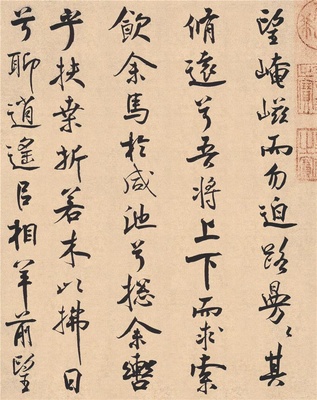 望崦嵫而勿迫路曼〻其
脩遠兮吾将上下而求索
飲余馬於咸池兮揔余轡
乎扶桒折若木以拂日
兮聊逍遙㠯相羊前望